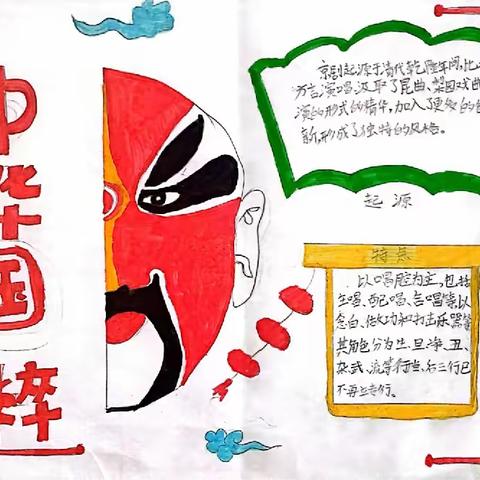 中华国粹
京剧起源于清代乾隆年间,比
方言演唱,汲取了昆曲、梨园戏曲
演的形式的精华,加入了更多的创
新,形成了独特的风格。
起源
特点
以唱腔为主,包括
生唱、配唱、合唱等以
念白、做功和打击乐器等
其角色分为生、旦、净、丑、
杂、武、流等行当,后三行已
不再立专行。